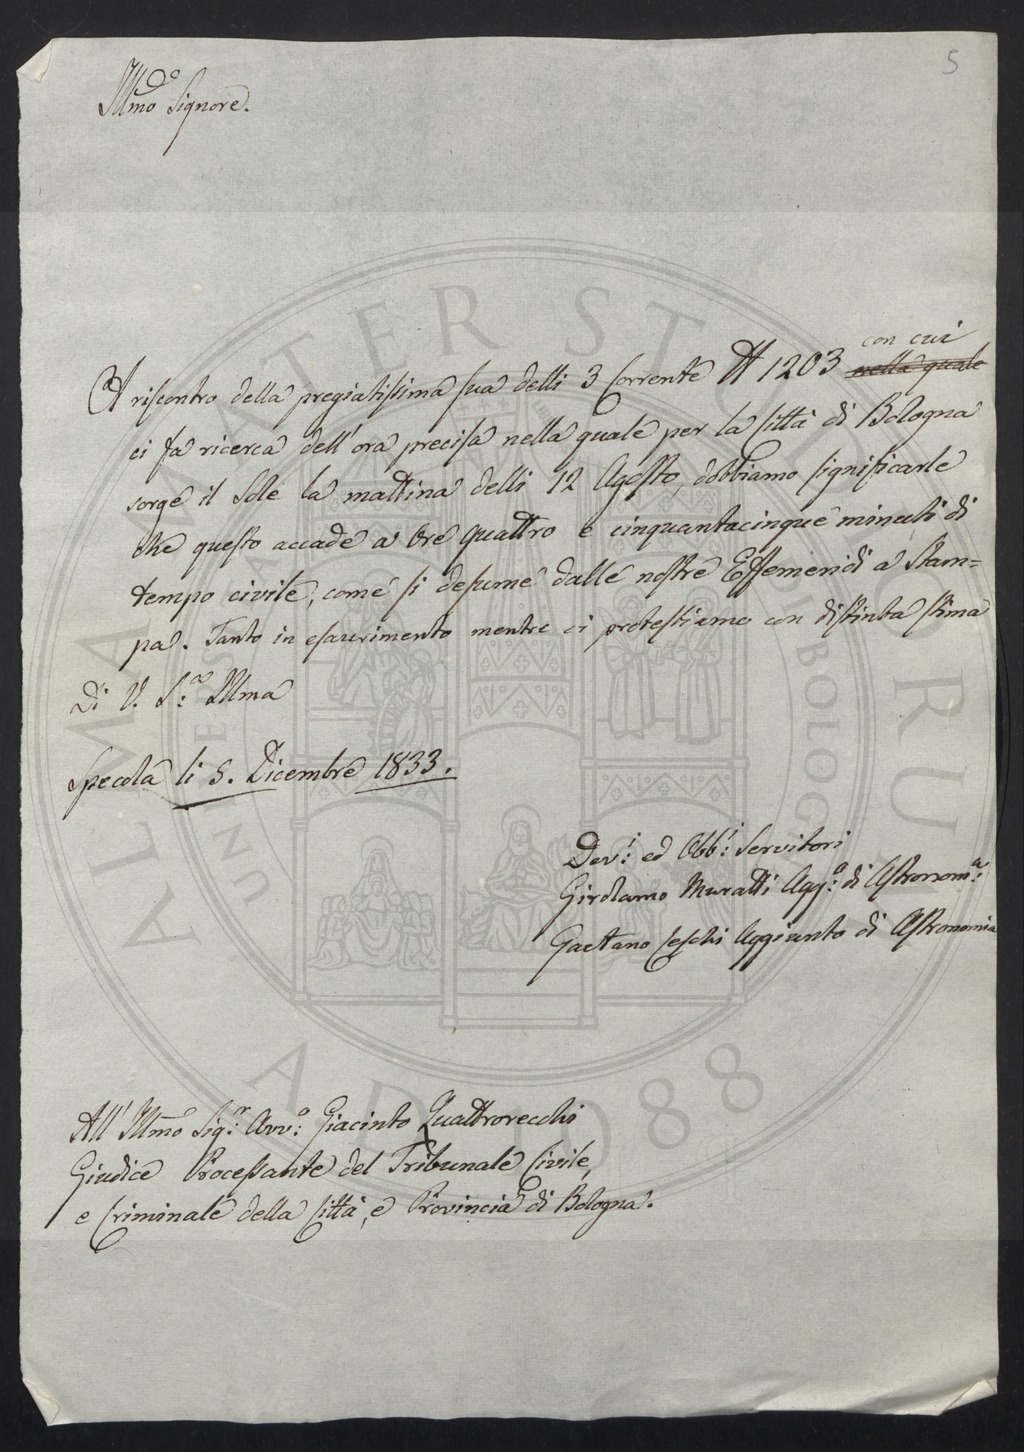 5
Illmo Signore.
con cui
A riscontro della pregiatissima sua delli 3 Corrente N 1203 nella quale
ci fa ricerca dell'ora precisa nella quale per la Città di Bologna
sorge il Sole la mattina delli 12 Agosto, dobbiamo significarle
che questo accade a Ore quattro e cinquantacinque minuti di
tempo civile, come si desume dalle nostre Effemeridi a Stam=
pa. Tanto in esaurimento mentre ci protestiamo con distinta stima
Di V. S:a Illma
Specola li 5. Dicembre 1833.
Dev:i ed Obb:i Servitori
Girolamo Muratti Agg:o di Astronom:a
Gaetano Ceschi Aggiunto di Astronomia
All' Illmo Sig:r Avv:o Giacinto Quattrovecchi
Giudice Processante del Tribunale Civile,
e Criminale della Città, e Provincia di Bologna.
ALMA MATER STUDIORUM
UNIVERSITÀ DI BOLOGNA
A.D. 1088